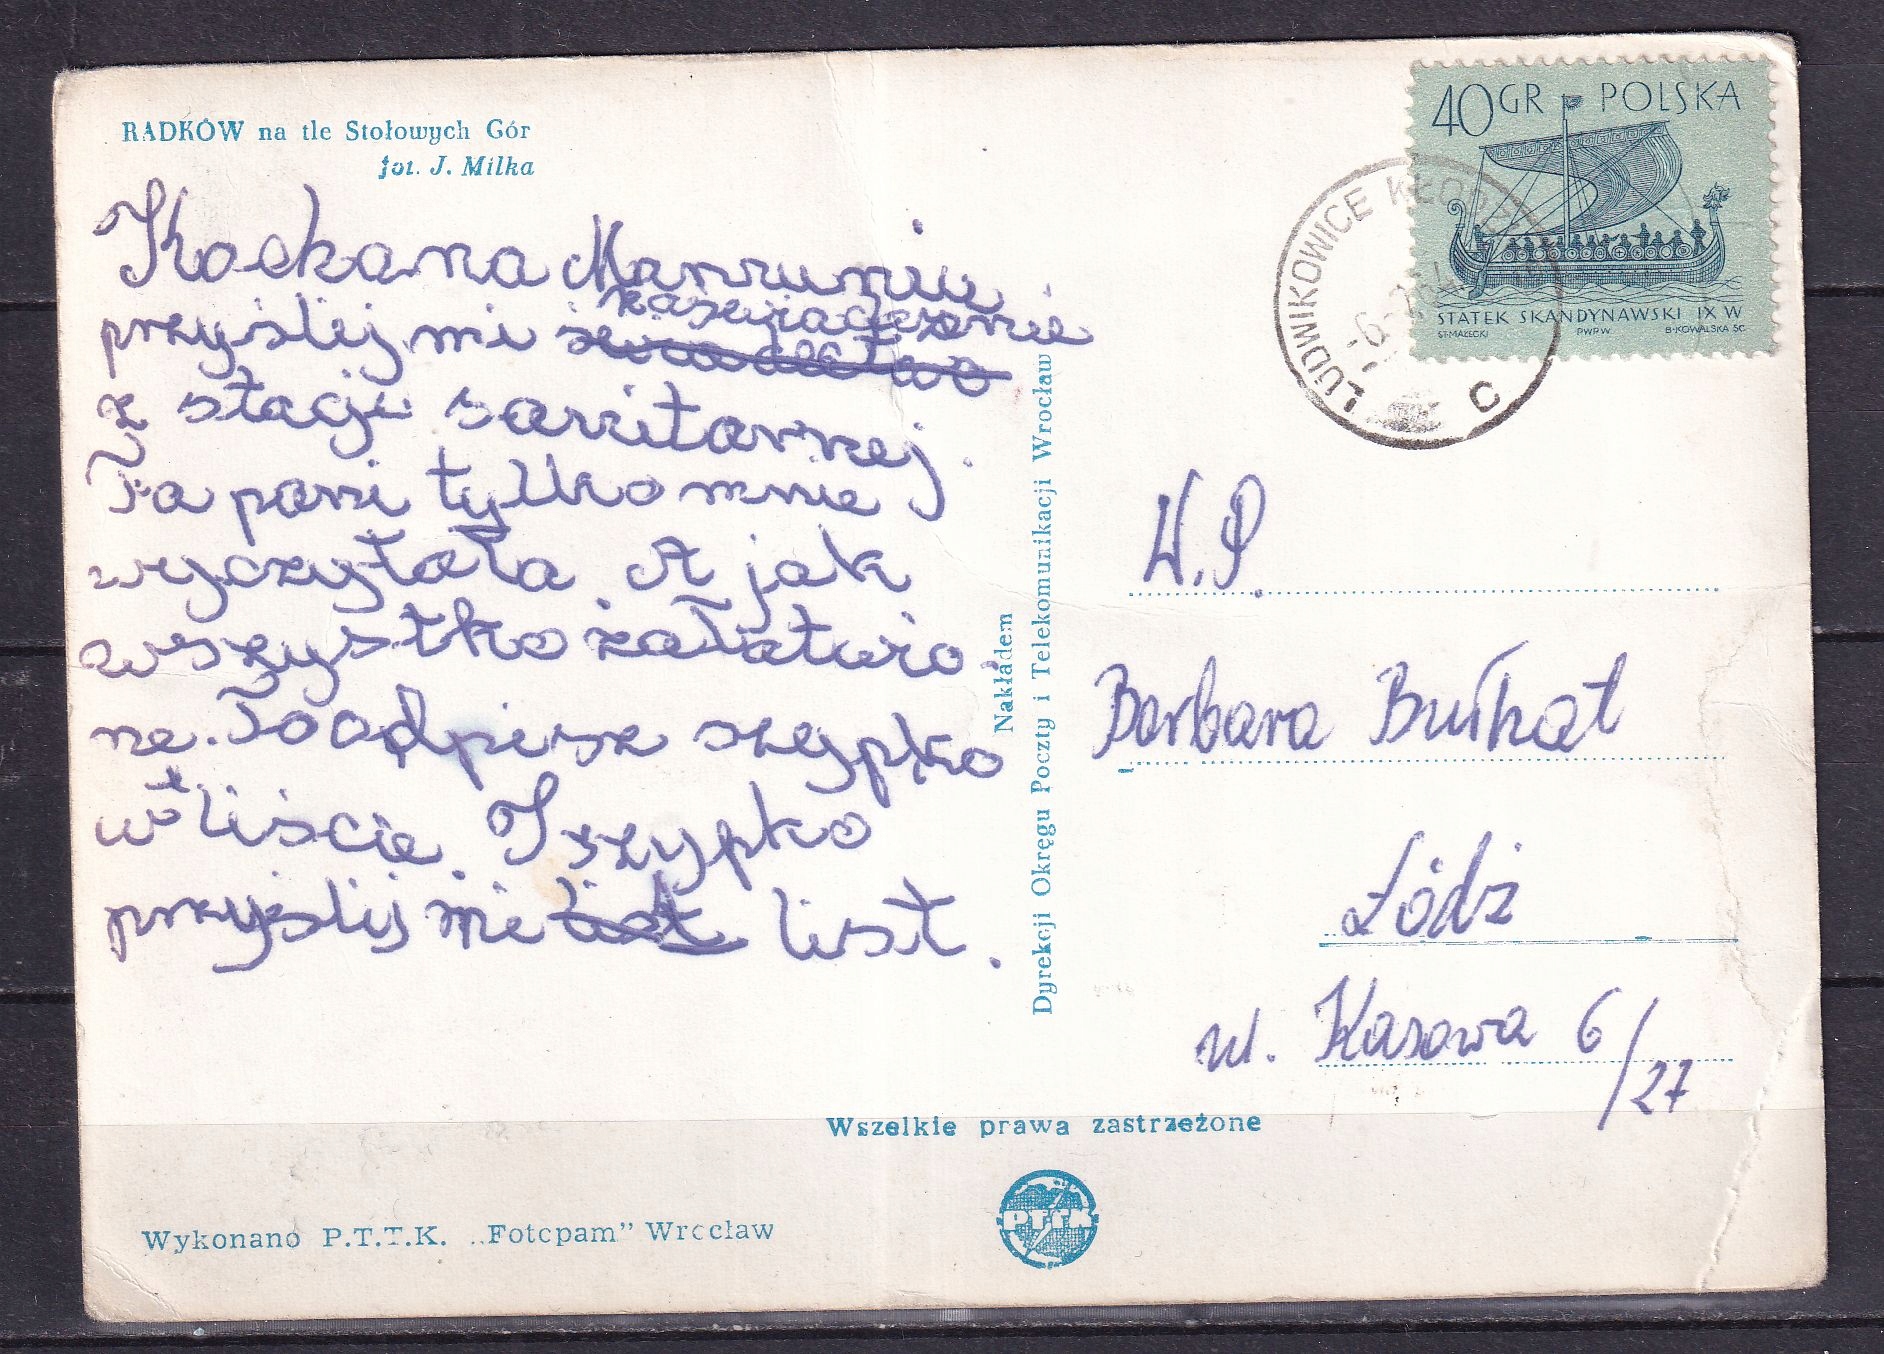 RADKÓW na tle Stołowych Gór
fot. J. Milka
Kochana Mamuniu
przyślij mi
z stacji sanitarnej.
Ta pani tylko mnie
wyczytała A jak
wszystko załatwio
ne. To odpisz szypko
w liście. I szypko
przyślij mi list list.
Nakładem
Dyrekcji Okręgu Poczty i Telekomunikacji Wrocław
40 GR POLSKA
STATEK SKANDYNAWSKI IX W
ST. MAŁECKI PWPW B. KOWALSKA SC.
LUDWIKOWICE KŁODZKIE
C
W.P.
Barbara Burhat
Łódź
ul. Kasowa 6/27
Wszelkie prawa zastrzeżone
PTTK
Wykonano P.T.T.K. „Fotopam” Wrocław